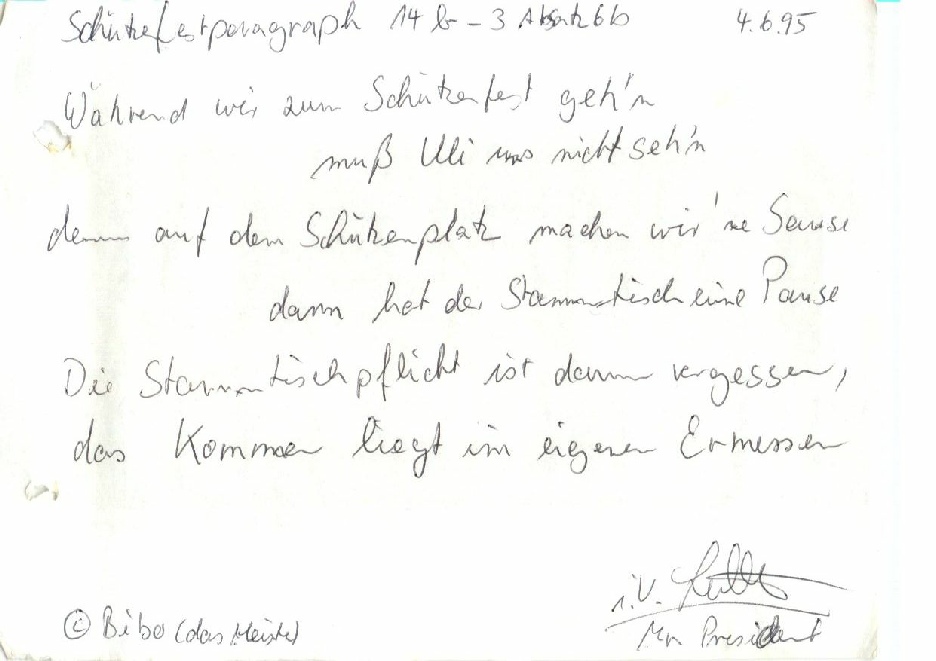 Schützefestparagraph 14 b - 3 Absatz 6b 4.6.95
Während wir zum Schützenfest geh'n
muß Uli uns nicht seh'n
denn auf dem Schützenplatz machen wir 'ne Sause
dann hat der Stammtisch eine Pause
Die Stammtischpflicht ist dann vergessen,
das Kommen liegt im eigenen Ermessen
i.V.
Mr. President
© Bibo (das Meiste)